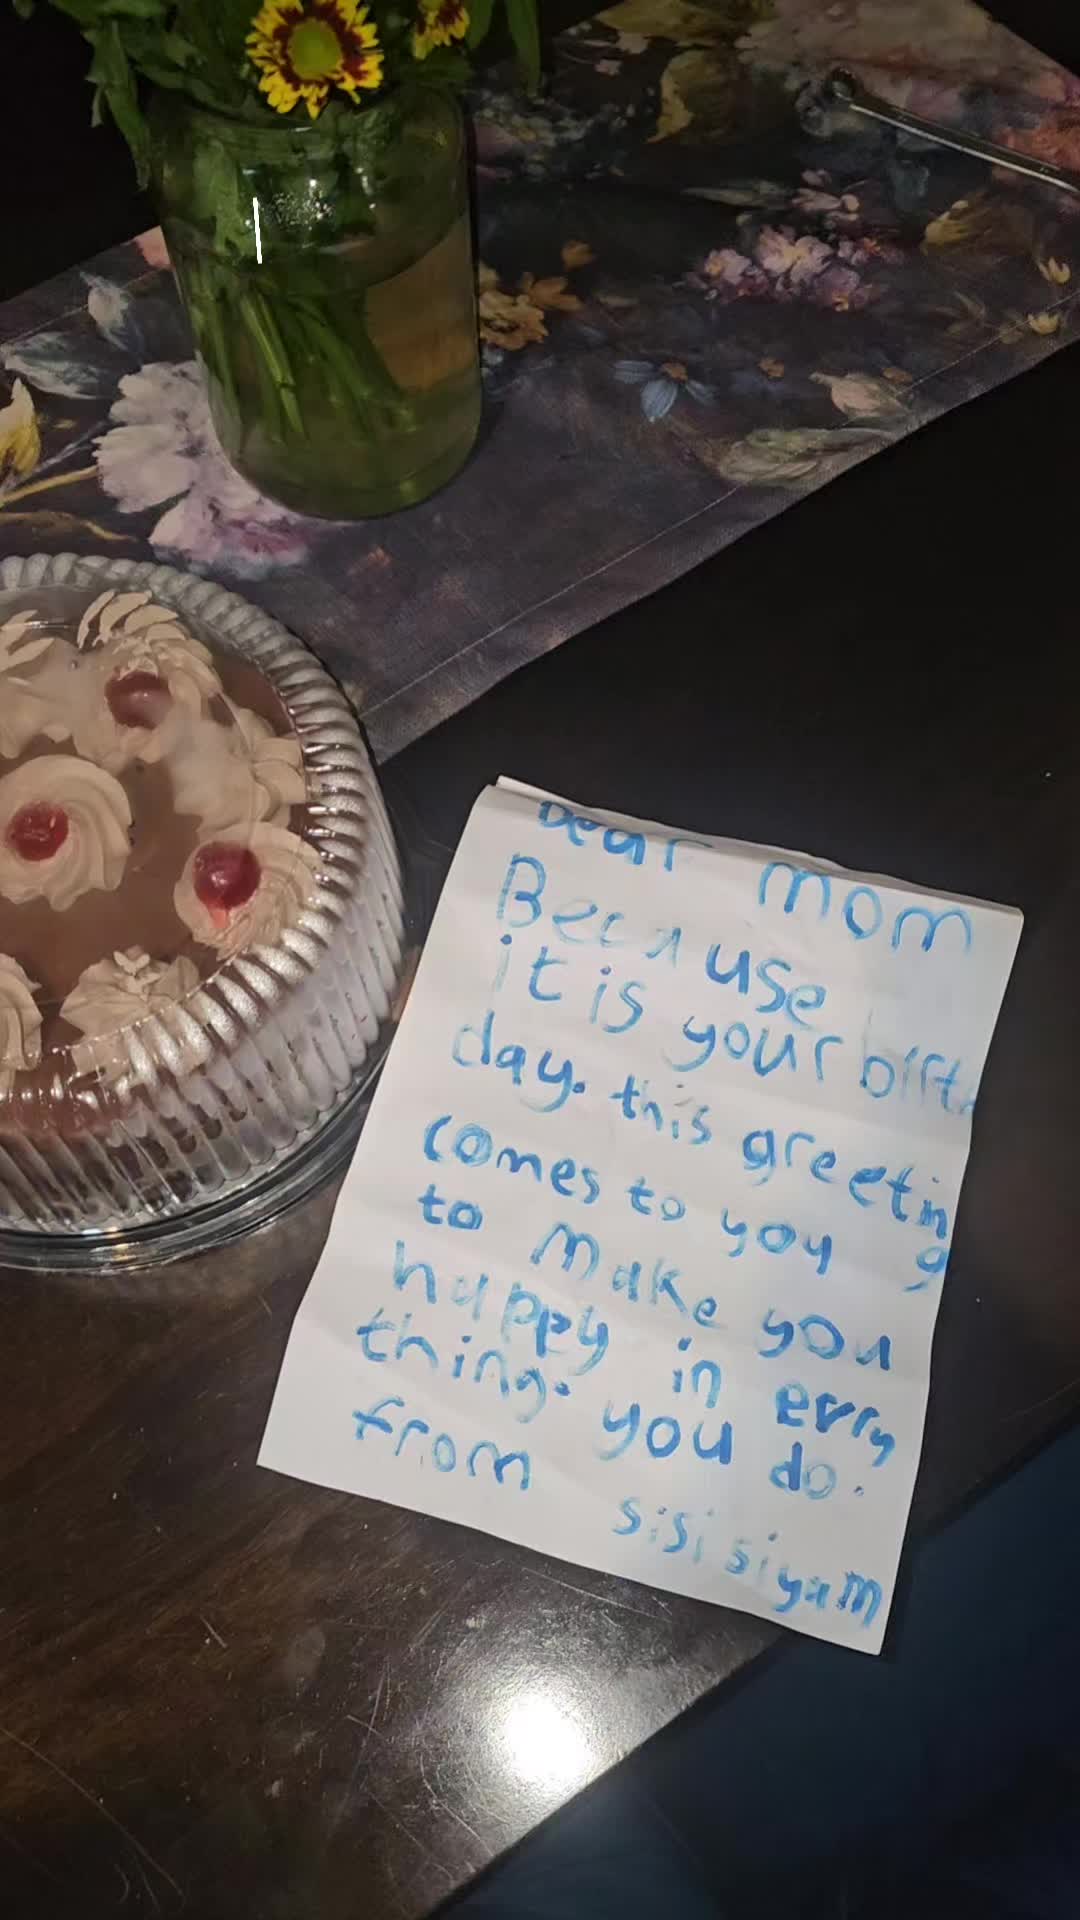 Dear mom
Because
it is your birth
day. this greeting
comes to you
to make you
happy in evrry
thing. you do.
from sisi siyam